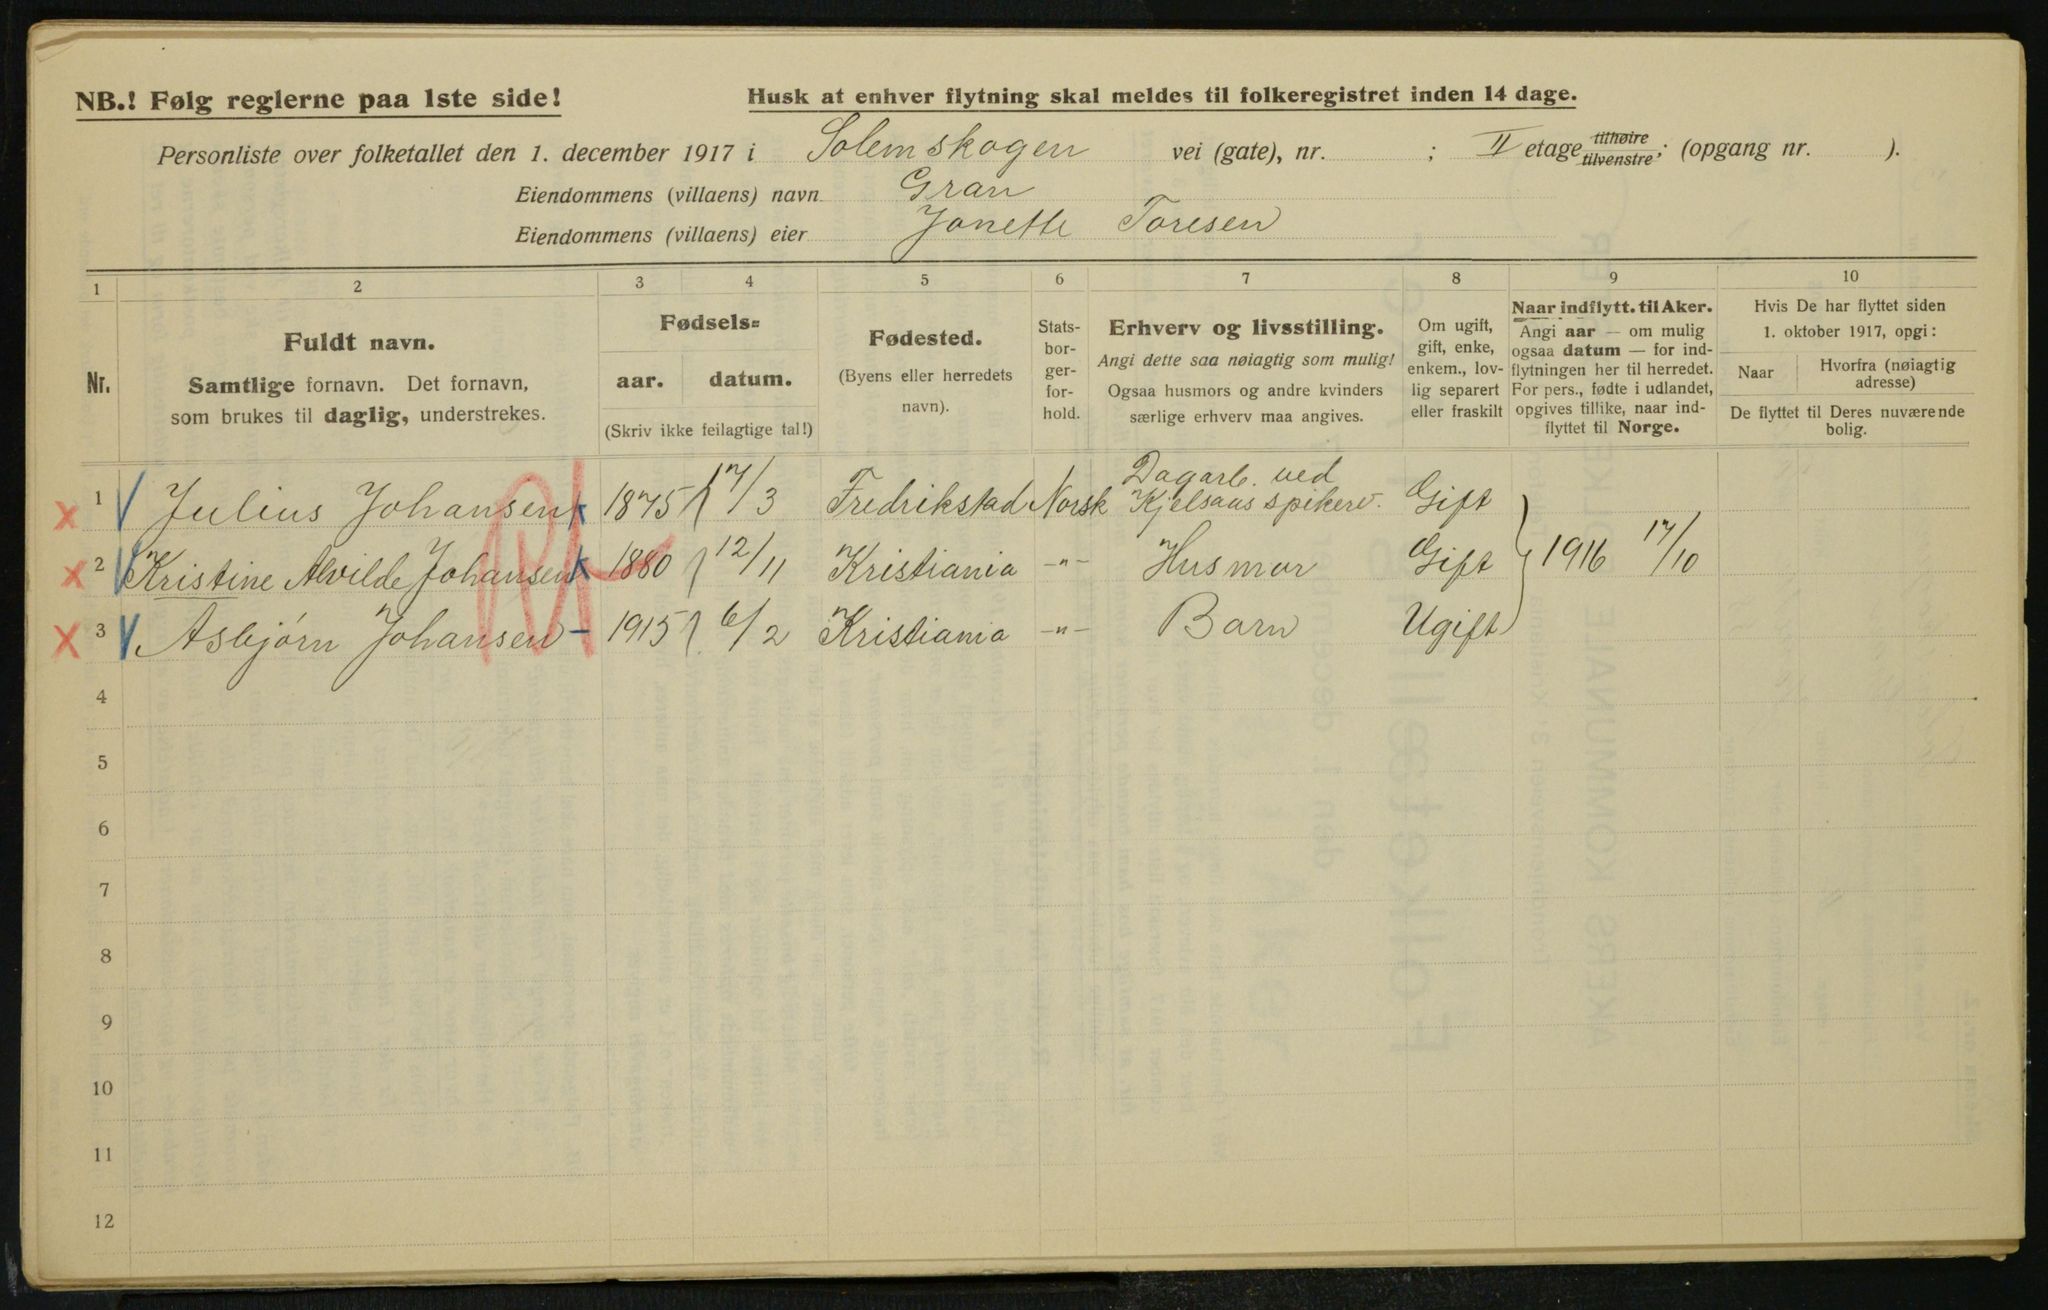 NB.! Følg reglerne paa 1ste side!
Husk at enhver flytning skal meldes til folkeregistret inden 14 dage.
Personliste over folketallet den 1. december 1917 i Solemskogen vei (gate), nr. ; II etage tilhøire tilvenstre; (opgang nr. ).
Eiendommens (villaens) navn Gran
Eiendommens (villaens) eier Jonette Toresen
1 2 3 4 5 6 7 8 9 10
Nr.
Fuldt navn.
Samtlige fornavn. Det fornavn,
som brukes til daglig, understrekes.
Fødsels=
aar. datum.
(Skriv ikke feilagtige tal!)
Fødested.
(Byens eller herredets
navn).
Stats-
bor-
ger-
for-
hold.
Erhverv og livsstilling.
Angi dette saa nøiagtig som mulig!
Ogsaa husmors og andre kvinders
særlige erhverv maa angives.
Om ugift,
gift, enke,
enkem., lov-
lig separert
eller fraskilt
Naar indflytt. til Aker.
Angi aar — om mulig
ogsaa datum — for ind-
flytningen her til herredet.
For pers., fødte i udlandet,
opgives tillike, naar ind-
flyttet til Norge.
Hvis De har flyttet siden
1. oktober 1917, opgi:
Naar
Hvorfra (nøiagtig
adresse)
De flyttet til Deres nuværende
bolig.
1 Julius Johansen 1875 17/3 Fredrikstad Norsk Dagarb. ved Kjelsaas spikerv. Gift
2 Kristine Alvilde Johansen 1880 12/11 Kristiania -"- Husmor Gift 1916 17/10
3 Asbjørn Johansen 1915 6/2 Kristiania -"- Barn Ugift
4
5
6
7
8
9
10
11
12